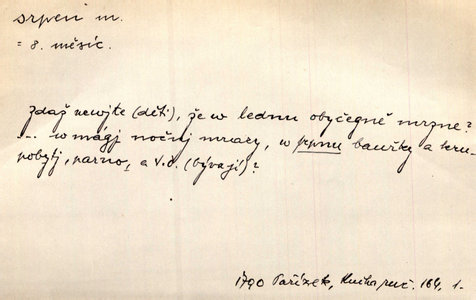 srpen m.
= 8. měsíc.
Zdaž newjte (děti), že w lednu obyčegně mrzne?
... w mágj nočnj mrazy, w srpnu bauřky a kru-
pobytj, parno, a t.d. (bývají)?
1790 Pařízek, Kniha ruč. 164, 1.